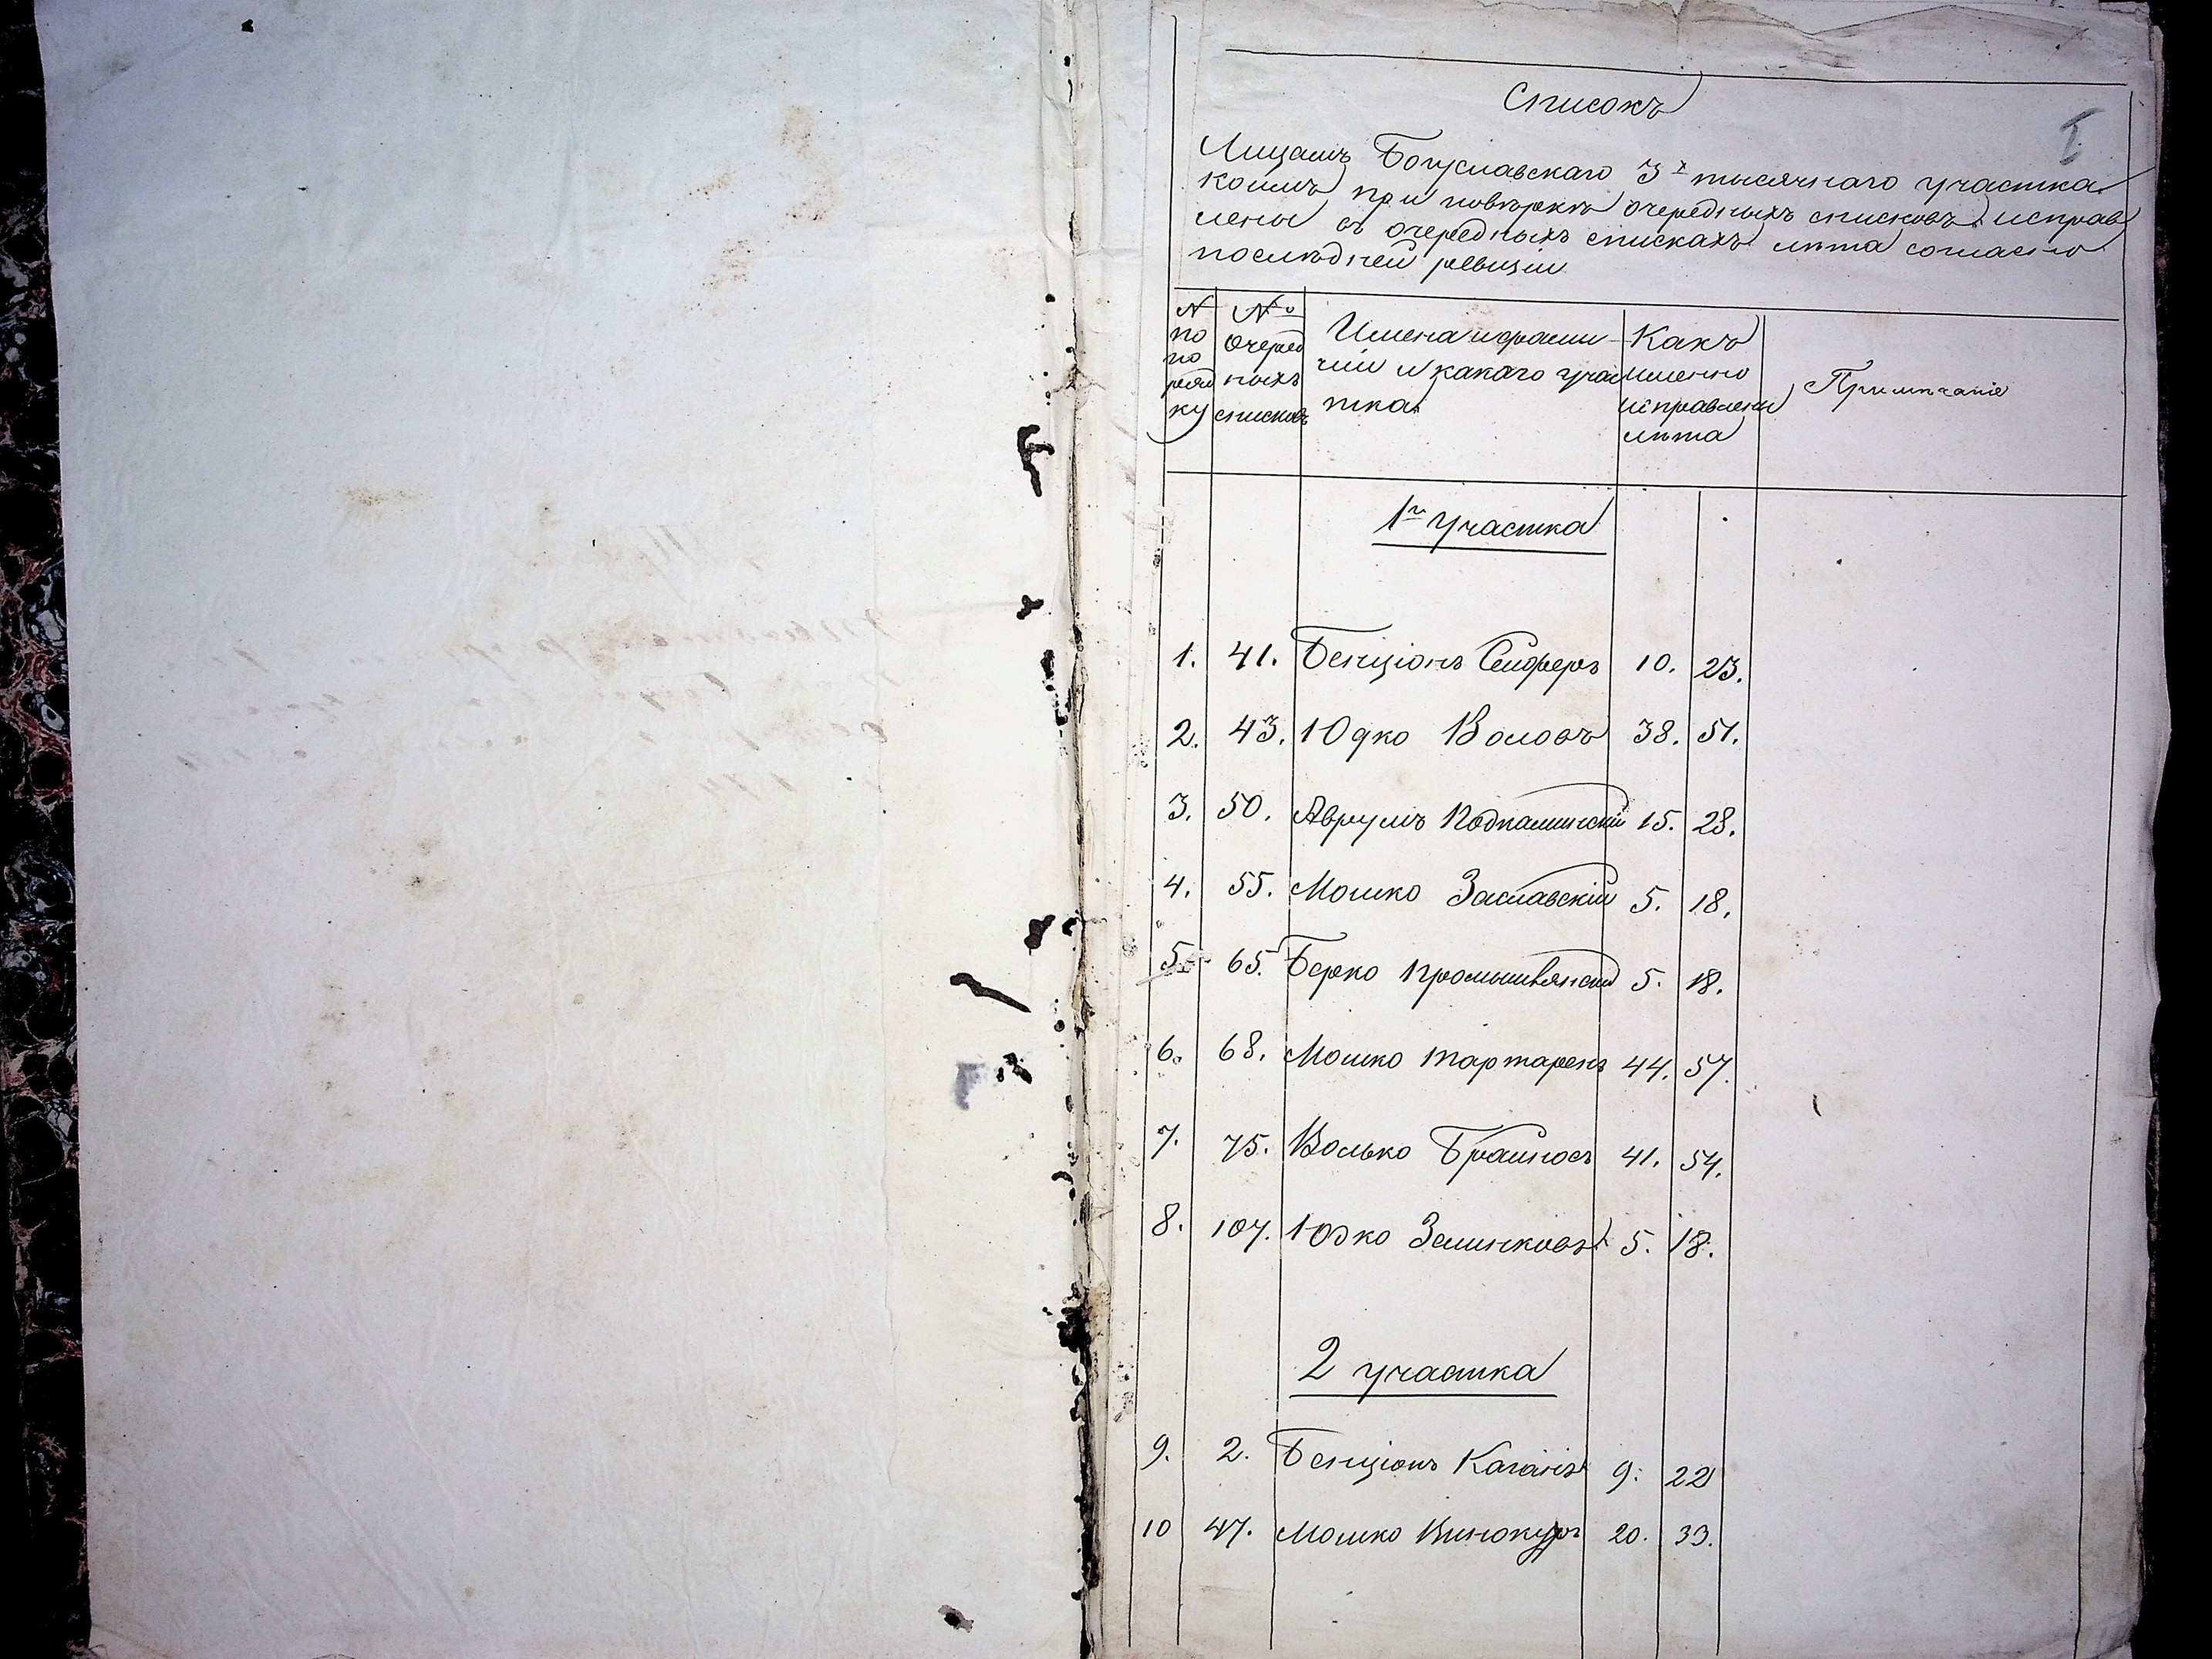 Списокъ
I
Лицамъ Богуславскаго 3х тысячнаго участка
коимъ при повѣркѣ очередныхъ списковъ исправ
лены въ очередныхъ спискахъ лѣта согласно
послѣдней ревизіи
N по поряд ку
№ Очеред ныхъ списковъ
Имена и фами лии и какаго учас тка
Какъ именно исправлены лѣта
Примѣчаніе
1го участка
1. 41. Бенціонъ Сендеръ 10. 23.
2. 43. Юдко Воловъ 38. 51.
3. 50. Аврумъ Подкаминскій 15. 28.
4. 55. Мошко Заславскій 5. 18.
5. 65. Берко 5. 18.
6. 68. Мошко 44. 57.
7. 75. Волько 41. 54.
8. 107. Юдко 5. 18.
2 участка
9. 2. Бенціонъ Каганъ 9. 22
10 47. Мошко Винокуръ 20. 33.